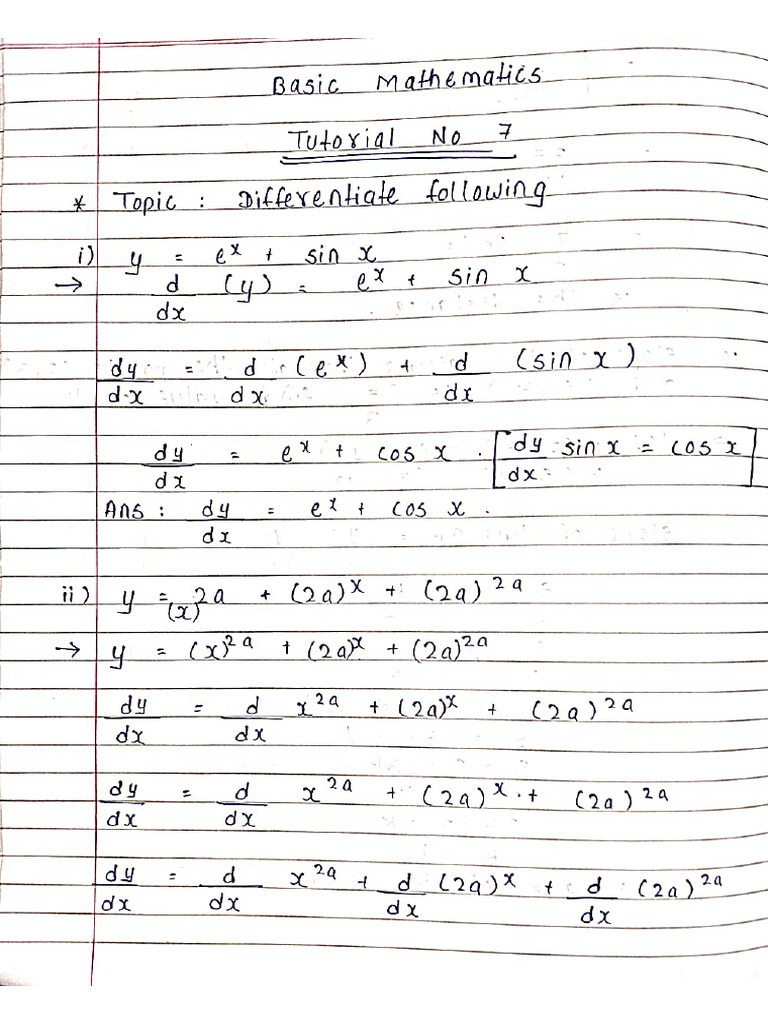 Basic Mathematics
Tutorial No 7
* Topic : Differentiate following
i) y = e^x + sin x
→ d/dx (y) = e^x + sin x
dy/dx = d/dx (e^x) + d/dx (sin x)
dy/dx = e^x + cos x . [dy/dx sin x = cos x]
Ans : dy/dx = e^x + cos x .
ii) y = (x)^2a + (2a)^x + (2a)^2a
→ y = (x)^2a + (2a)^x + (2a)^2a
dy/dx = d/dx x^2a + (2a)^x + (2a)^2a
dy/dx = d/dx x^2a + (2a)^x + (2a)^2a
dy/dx = d/dx x^2a + d/dx (2a)^x + d/dx (2a)^2a